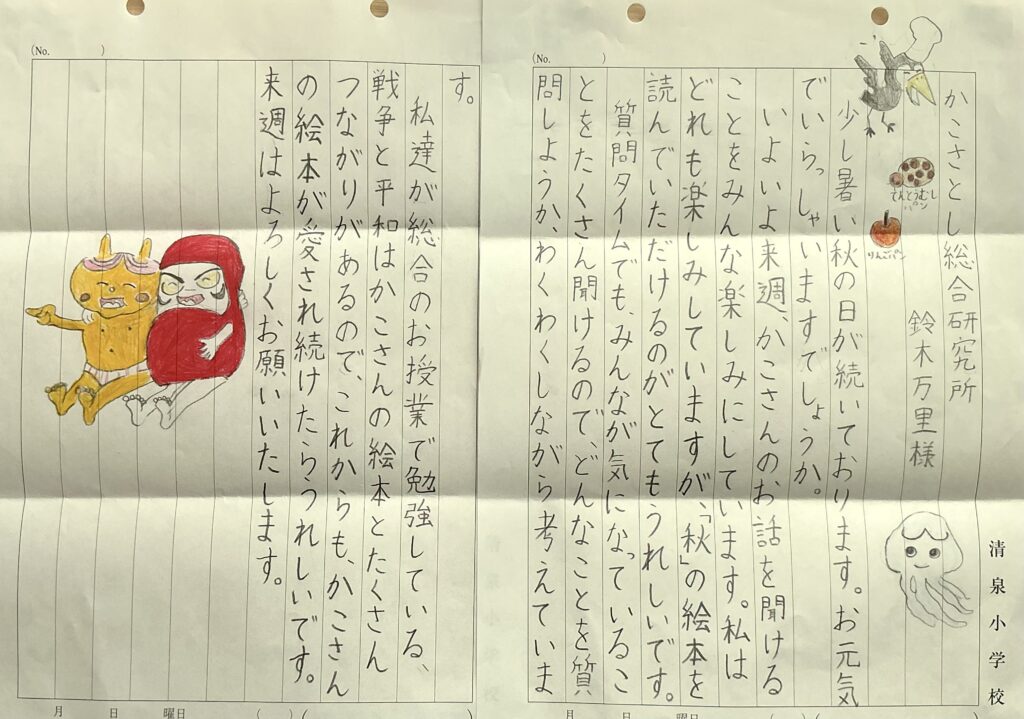 (No.　　　)
かこさとし総合研究所
鈴木万里様
少し暑い秋の日が続いております。お元気
でいらっしゃいますでしょうか。
いよいよ来週、かこさんのお話を聞ける
ことをみんな楽しみにしています。私は
どれも楽しみしていますが、「秋」の絵本を
読んでいただけるのがとてもうれしいです。
質問タイムでも、みんなが気になっているこ
とをたくさん聞けるので、どんなことを質
問しようか、わくわくしながら考えていま
てんとうむし
パン
りんごパン
清泉小学校
月　日　曜日　(　　)(
(No.　　　)
す。
私達が総合のお授業で勉強している、
戦争と平和はかこさんの絵本とたくさん
つながりがあるので、これからも、かこさん
の絵本が愛され続けたらうれしいです。
来週はよろしくお願いいたします。
月　日　曜日　(　　)(